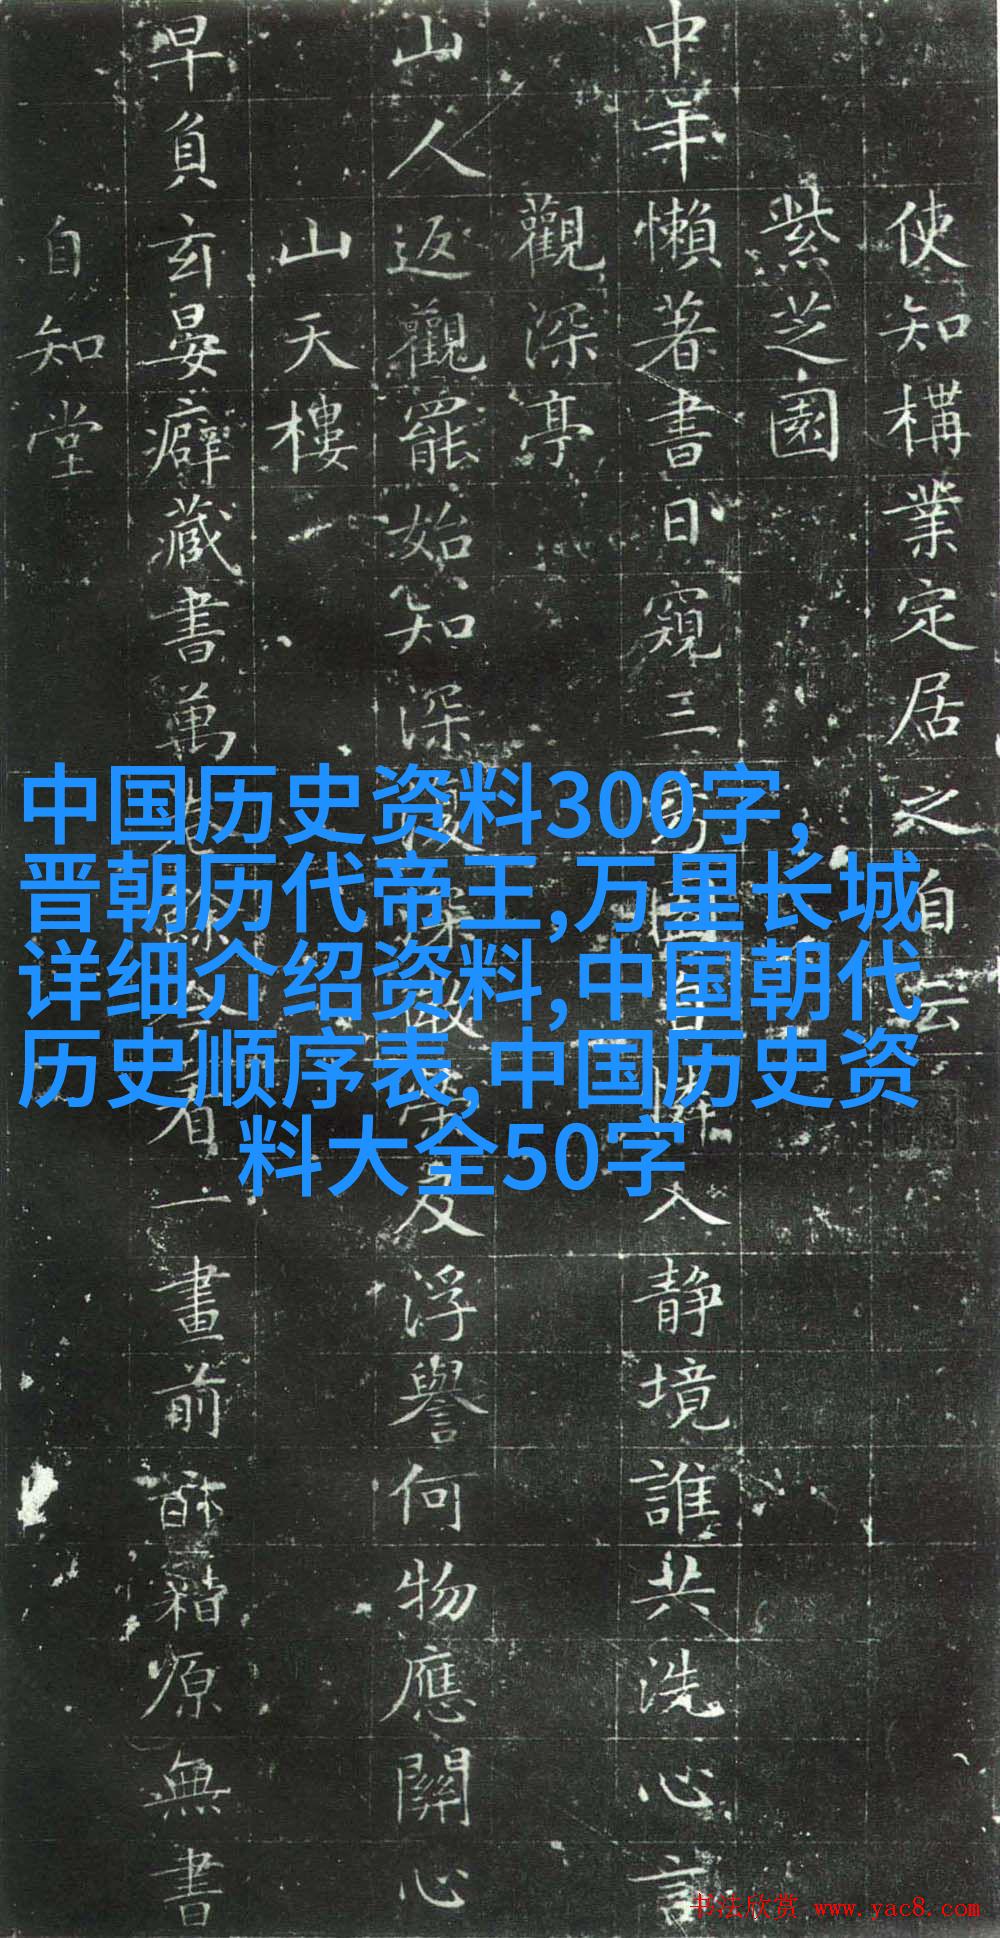 使知構業定居之自云
紫芝園
中年懶著書日窺三入靜境誰共洗心言
觀深亭
山人返觀罷始知深及浮譽何物應關心
山天樓
早負玄晏癖藏書萬看一畫前籍原無書
自知堂
中国历史资料300字,
晋朝历代帝王,万里长城
详细介绍资料,中国朝代
历史顺序表,中国历史资
料大全50字
书法欣赏 www.yac8.com